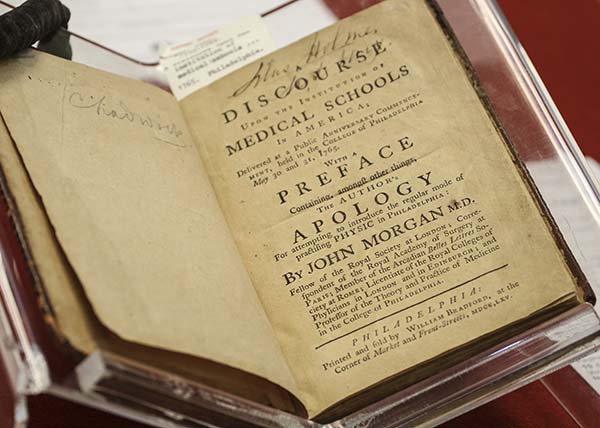 Chadwick
institution of
medical schools ...
1765. Philadelphia.
A
DISCOURSE
UPON THE INSTITUTION OF
MEDICAL SCHOOLS
IN AMERICA;
Delivered at a Public ANNIVERSARY COMMENCE-
MENT, held in the COLLEGE OF PHILADELPHIA
May 30 and 31, 1765.
WITH A
PREFACE
Containing, amongſt other things,
THE AUTHOR'S
APOLOGY
For attempting to introduce the regular mode of
practiſing PHYSIC in PHILADELPHIA:
BY JOHN MORGAN M.D.
Fellow of the Royal Society at LONDON; Corre-
ſpondent of the Royal Academy of Surgery at
PARIS; Member of the Arcadian Belles Lettres So-
ciety at ROME; Licentiate of the Royal Colleges of
Phyſicians in LONDON and in EDINBURGH; and
Profeſſor of the Theory and Practice of Medicine
in the College of PHILADELPHIA.
PHILADELPHIA:
Printed and ſold by WILLIAM BRADFORD, at the
Corner of Market and Front-Streets, MDCC,LXV.